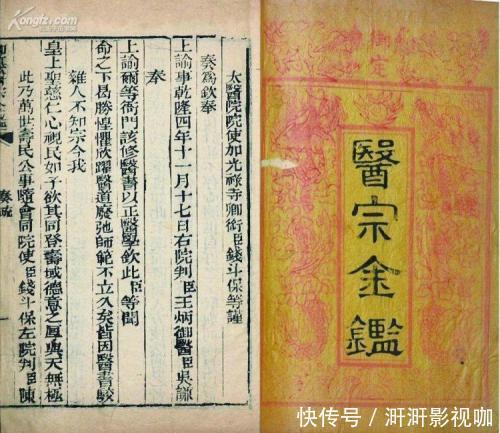 御定
醫宗金鑑
太醫院院使加光祿寺卿銜臣錢斗保等謹
奏為欽奉
上諭事乾隆四年十一月十七日右院判臣王炳御醫臣吳謙
奉
上諭爾等衙門該修醫書以正醫學欽此臣等聞
命之下曷勝惶懼欣躍醫道廢弛師範不立久矣皆因醫書駁
雜人不知宗今我
皇上聖慈仁心視民如子欲其同登壽域德意之厚與天無極
此乃萬世壽民公事隨會同院使臣錢斗保左院判臣陳
奏疏
快传号 / 浒浒影视咖